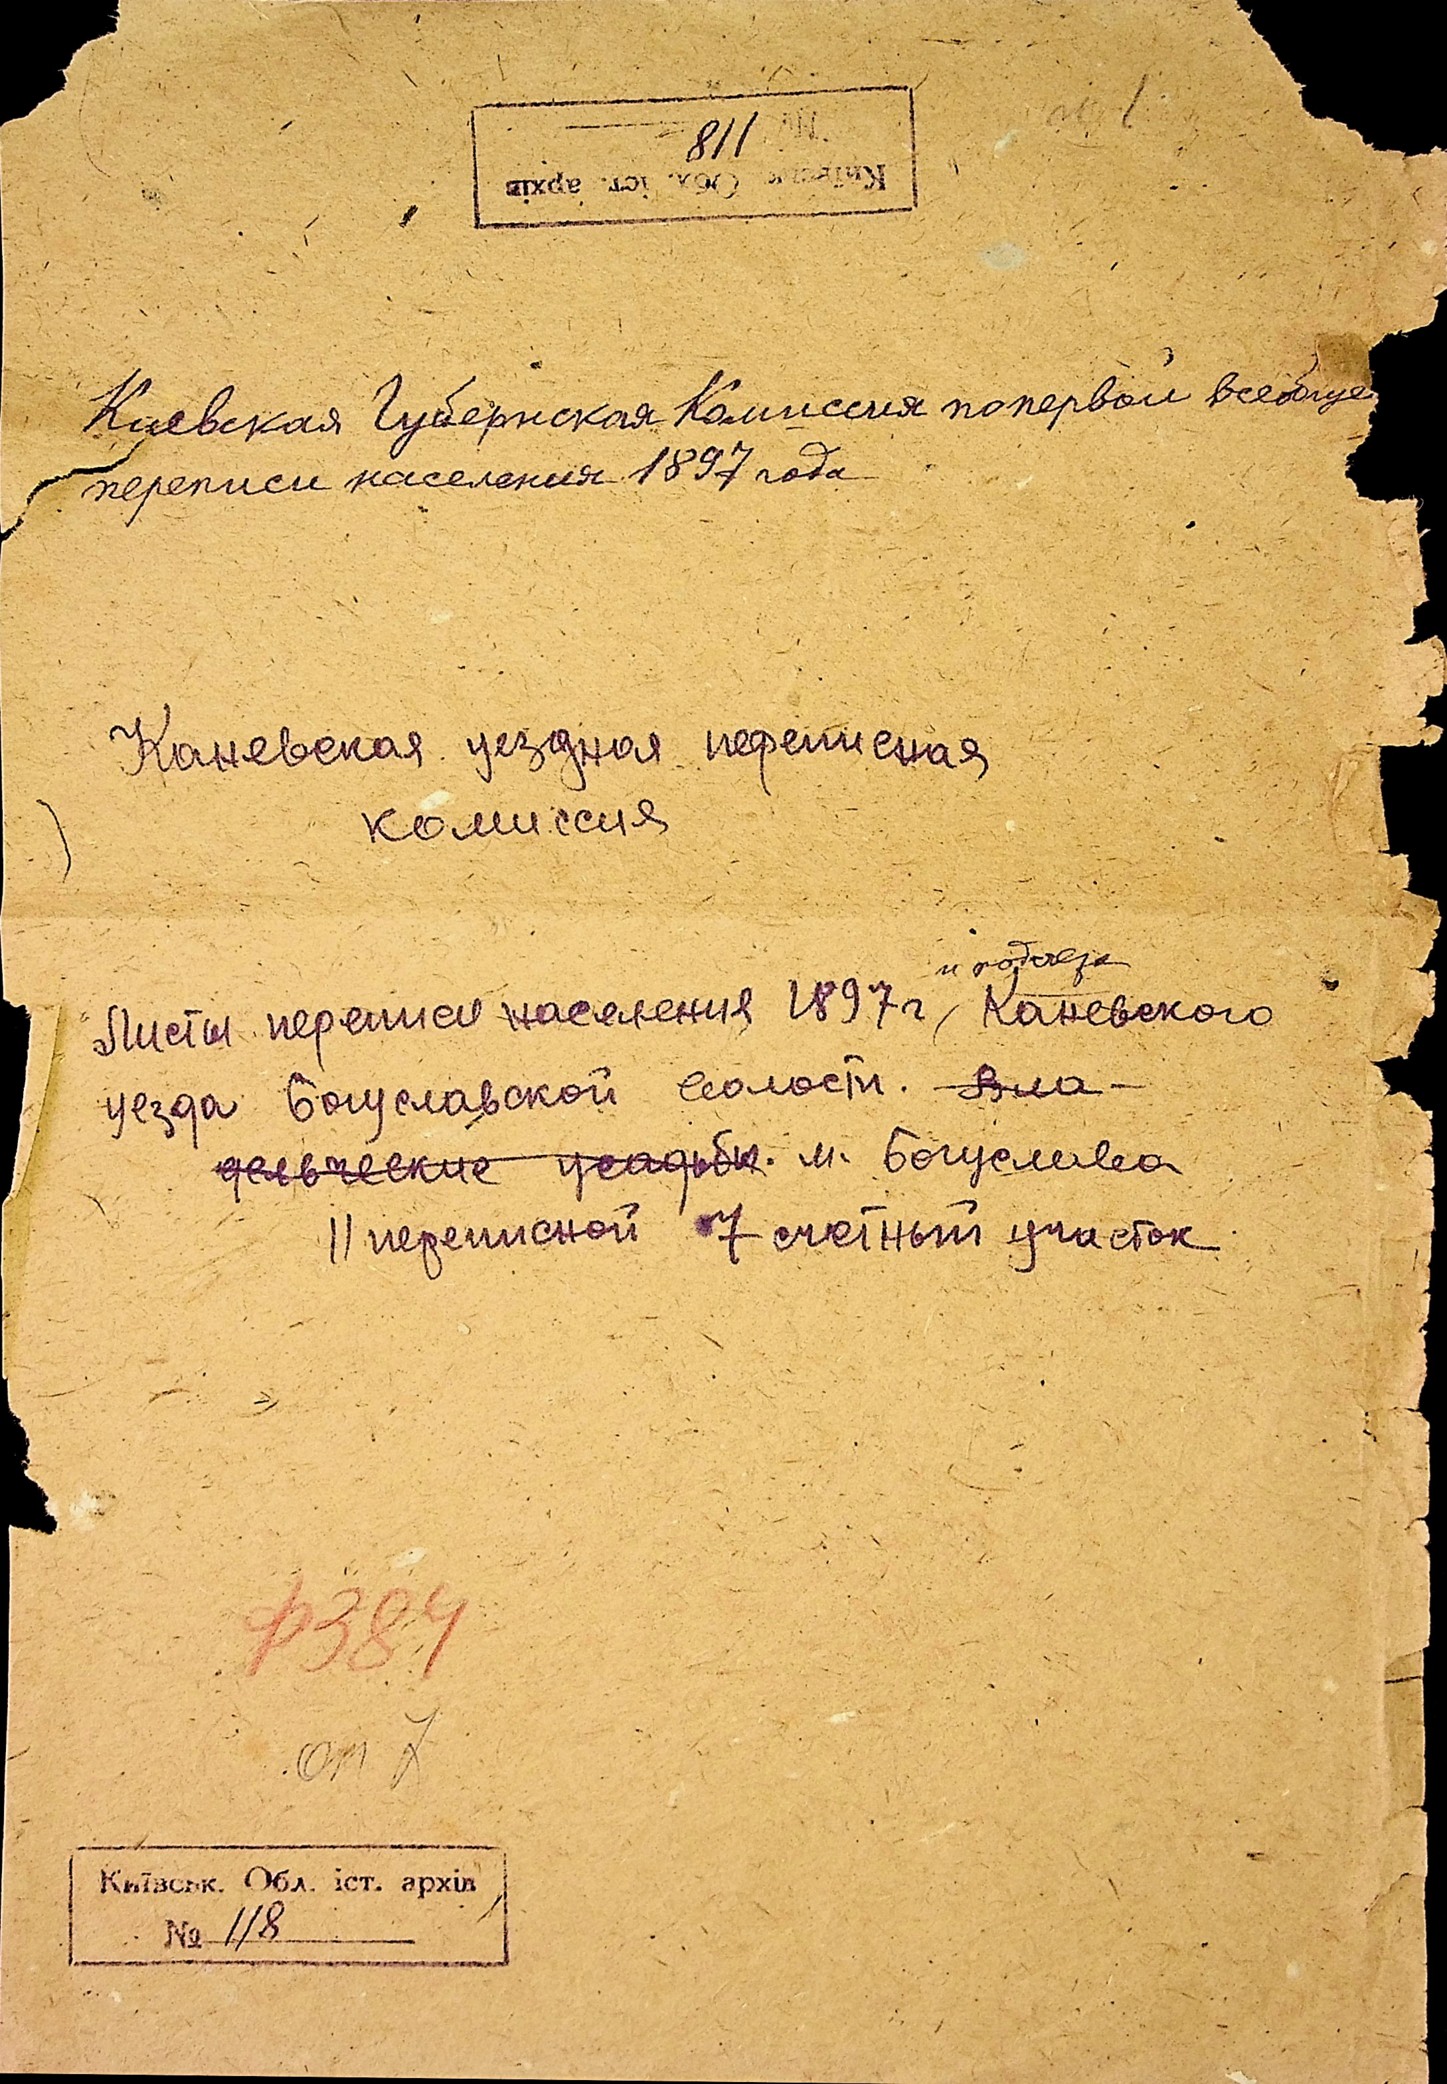 Київськ. Обл. іст. архів
№ 118
Киевская Губернская Комиссия по первой всеобще
переписи населения 1897 года
Каневская уездная переписная
комиссия
и подсчера
Листы переписи населения 1897 г, Каневского
уезда Богуславской волости. Вла-
дельческие усадьбы. м. Богуслава
II переписной 7 счетный участок
ф384
оп 7
Київськ. Обл. іст. архів
№ 118